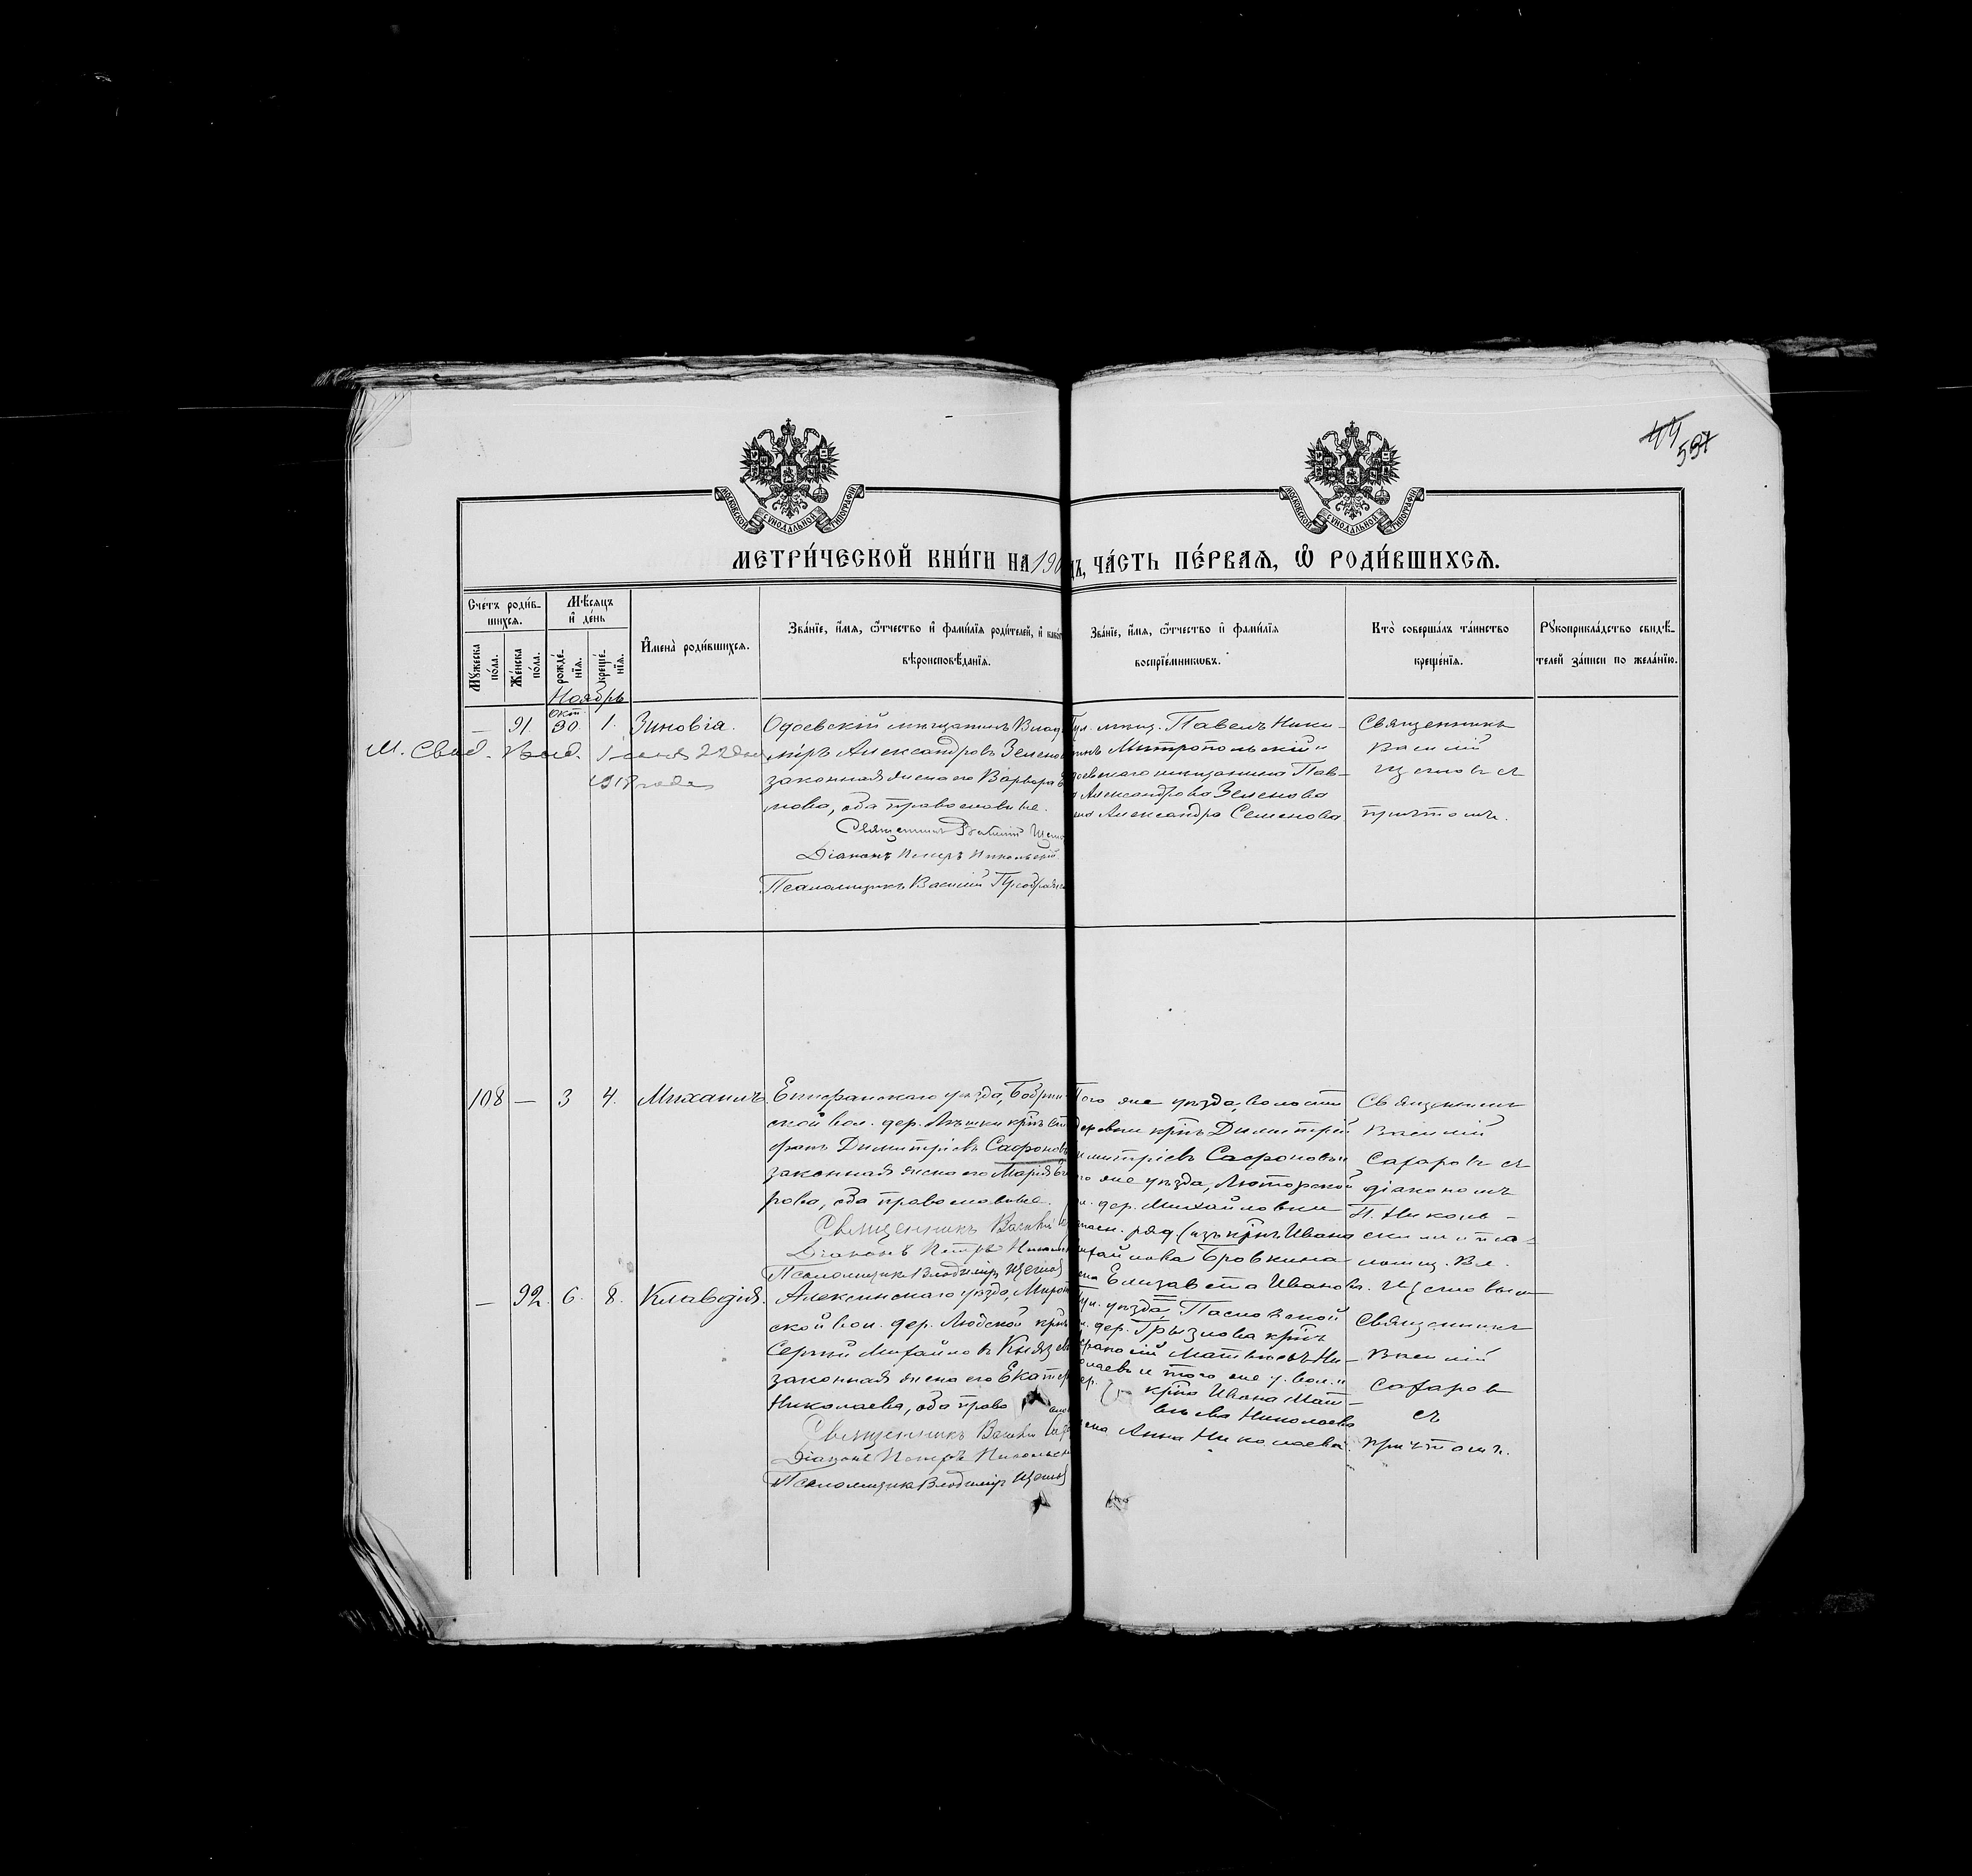 44
597
МОСКОВСКОЙ СУНОДАЛЬНОЙ ТИПОГРАФІИ
МОСКОВСКОЙ СУНОДАЛЬНОЙ ТИПОГРАФІИ
МЕТРИ́ЧЕСКОЙ КНИ́ГИ НА 190
дъ, ЧА́СТЬ ПЕ́РВАѦ, Ѡ҆ РОДИ́ВШИХСѦ.
Счетъ роди́в-
шихсѧ.
Мѣ́сѧцъ
и҆ де́нь
Мꙋ́жеска по́ла.
Же́нска по́ла.
рожде́-
нїѧ.
креще́-
нїѧ.
И҆мена̀ роди́вшихсѧ.
Зва́нїе, и҆́мѧ, ѻ҆́тчество и҆ фамѝлїѧ роди́телей, и҆ како́
вѣроисповѣ́данїѧ.
Зва́нїе, и҆́мѧ, ѻ҆́тчество и҆ фамѝлїѧ
воспрїе́мниковъ.
Кто̀ соверша́лъ та́инство
креще́нїѧ.
Рꙋкоприкла́дство свидѣ́-
телей за́писи по жела́нїю.
Ноябрь
— 91. Окт. 30. 1. Зиновія.
М. Свид. Выд.
22 дня
1918 года
Одоевскій мѣщанинъ Влад
міръ Александровъ Зелено
законная жена его Варвара
нова, оба православные.
Священникъ Василій Щегло
Діаконъ Петръ Никольскій
Псаломщикъ Василій Преображ
Тул. мѣщ. Павелъ Ники-
тинъ Митропольскій и
доевскаго мѣщанина Пав-
Александрова Зеленова
на Александра Семенова.
Священникъ
Василій
Щегловъ съ
причтомъ.
108 — 3 4. Михаилъ.
Епифанскаго уѣзда, Бобрин
ской вол. дер. Лѣшки крнъ
Димитріевъ Сафоновъ
законная жена его Марія
рова, оба православные.
Священникъ Василій
Діаконъ Петръ Николь
Псаломщикъ Владиміръ Щеглов
Того же уѣзда, волости
деревни крнъ Димитрій
имитріевъ Сафоновъ и
го же уѣзда, Люторской
дер. Михайловки
ряд. (изъ крнъ Ивана
хайлова Бровкина
на Елизавета Иванова.
Священникъ
Василій
Сахаровъ съ
діакономъ
П. Николь-
скимъ и пса-
ломщ. Вл.
Щегловымъ
— 92. 6. 8. Клавдія.
Алексинскаго уѣзда, Мирот
ской вол. дер. Людской крнъ
Сергій Михайловъ Князев
законная жена его Екатер
Николаева, оба право
Священникъ Василій Саха
Діаконъ Петръ Никольск
Псаломщикъ Владиміръ Щеглов
Тул. уѣзда Пасловской
дер. Грызлова крнъ
Матвѣевъ Ни-
олаевъ и того же у. вол. и
дер. крна Ивана Мат-
вѣева Николаева
жена Анна Николаева.
Священникъ
Василій
Сахаровъ
съ
причтомъ.